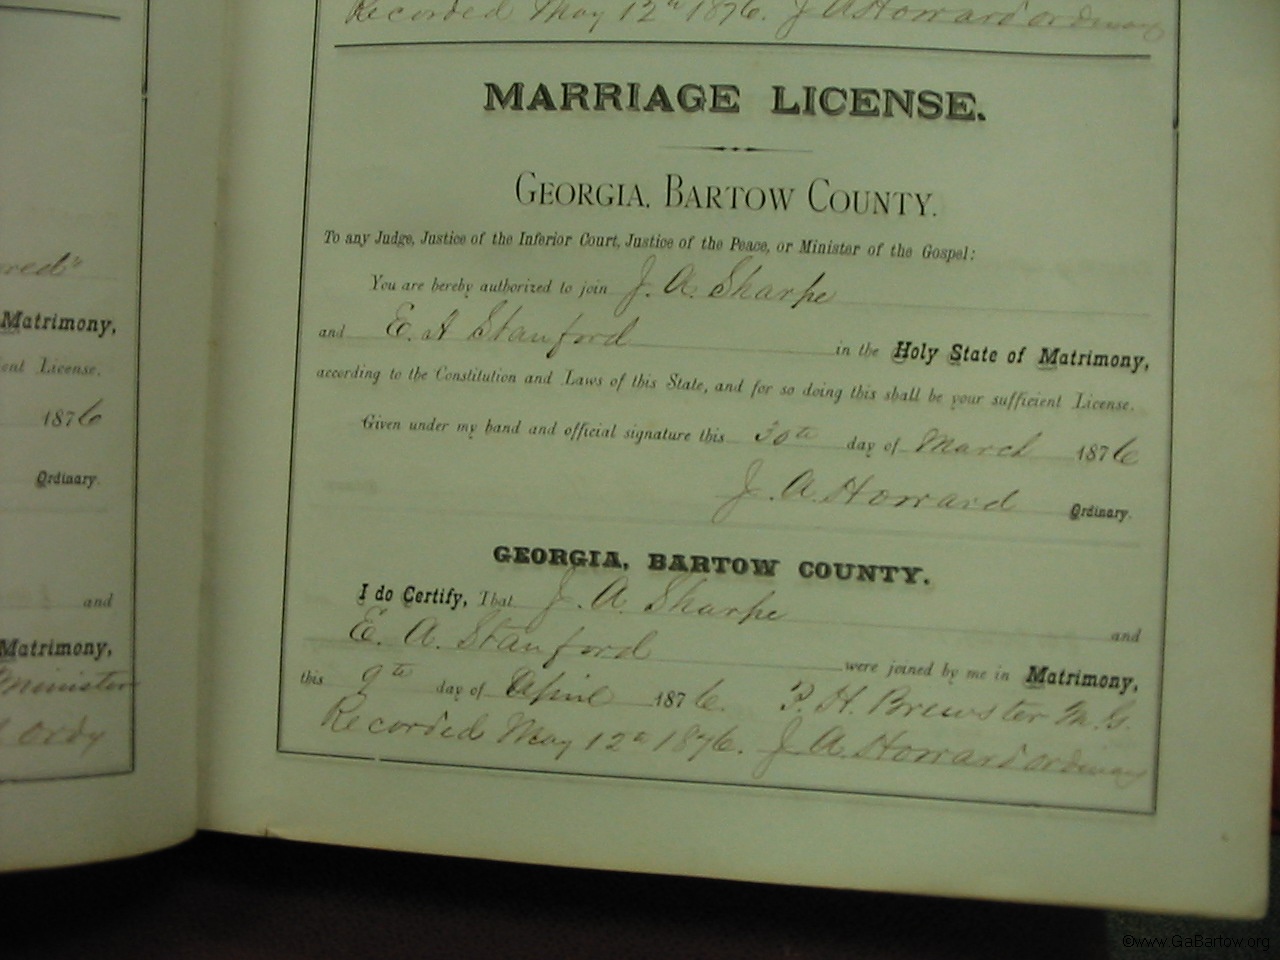 Recorded May 12th 1876. J A Howard ordinary
MARRIAGE LICENSE.
GEORGIA, BARTOW COUNTY.
To any Judge, Justice of the Inferior Court, Justice of the Peace, or Minister of the Gospel:
You are hereby authorized to join J. A. Sharpe
and E. A Stanford in the Holy State of Matrimony,
according to the Constitution and Laws of this State, and for so doing this shall be your sufficient License.
Given under my hand and official signature this 30th day of March 1876
J. A. Howard Ordinary.
GEORGIA, BARTOW COUNTY.
I do Certify, That J. A. Sharpe and
E. A. Stanford were joined by me in Matrimony,
this 9th day of April 1876. Brewster M. G.
Recorded May 12th 1876. J A Howard ordinary
Matrimony,
License.
1876
Ordinary.
and
Matrimony,
Minister
Ordy
©www.GaBartow.org